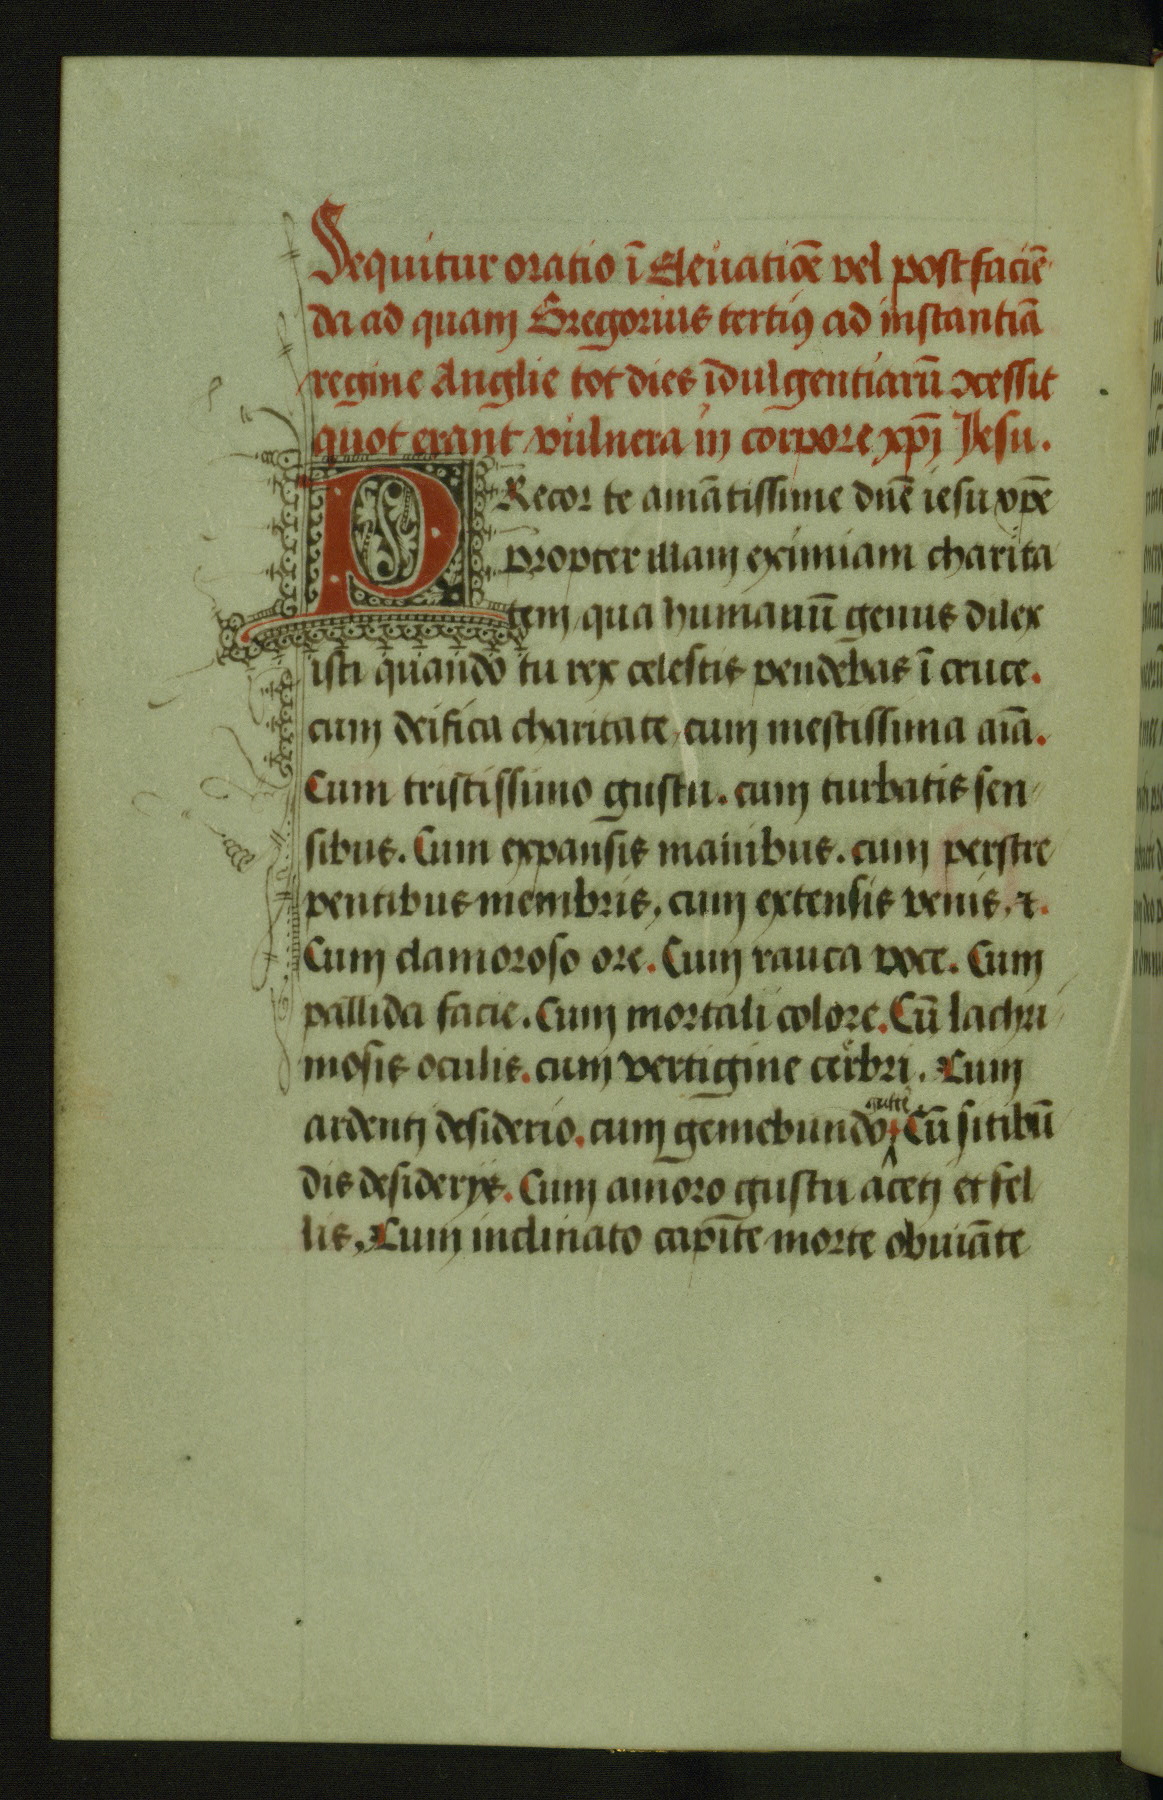 Sequitur oratio ī Eleuatiōe vel post faciē
da ad quam Gregorius tertiꝰ ad instantiā
regine Anglie tot dies īdulgentiarū ꝯcessit
quot erant vulnera in corpore xp̄i Jesu.
PRecor te amātissime dn̄e iesu xp̄e
propter illam eximiam charita
tem qua humanū genus dilex
isti quando tu rex celestis pendebas ī cruce.
cum deifica charitate, cum mestissima aīa.
Cum tristissimo gustu. cum turbatis sen
sibus. Cum expansis manibus. cum perstre
pentibus membris, cum extensis venis. ⁊.
Cum clamoroso ore. Cum rauca voce. Cum
pallida facie. Cum mortali colore. Cū lachri
mosis oculis. cum vertigine cerbri. Cum
ardenti desiderio. cum gemebundo gutte. Cū sitibū
dis desiderijs. Cum amoro gustu aceti et fel
lis, Cum inclinato capite morte obuiāte